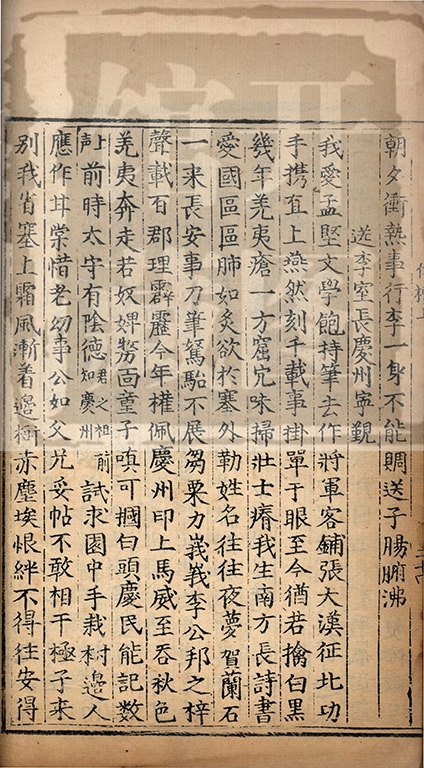 朝夕衝熱事行李一身不能賙送子腸腑沸
送李室長慶州寧覲
我愛孟堅文學飽持筆去作將軍客鋪張大漢征北功
手携直上燕然刻千載事掛單于眼至今猶若擒白黑
幾年羌夷瘡一方窟宂未掃壯士瘠我生南方長詩書
愛國區區肺如炙欲於塞外勒姓名往往夜夢賀蘭石
一来長安事刀筆駑駘不展芻粟力峩峩李公邦之梓
聲載百郡理霹靂今年權佩慶州印上馬威至吞秋色
羌夷奔走若奴婢勞靣童子嗔可摑白頭慶民能記數
前時太守有陰德君之祖前知慶州試求園中手栽樹邊人
應作甘棠惜老幼事公如父兄妥帖不敢相干極子来
別我省塞上霜風漸着邊樹赤塵埃恨絆不得往安得